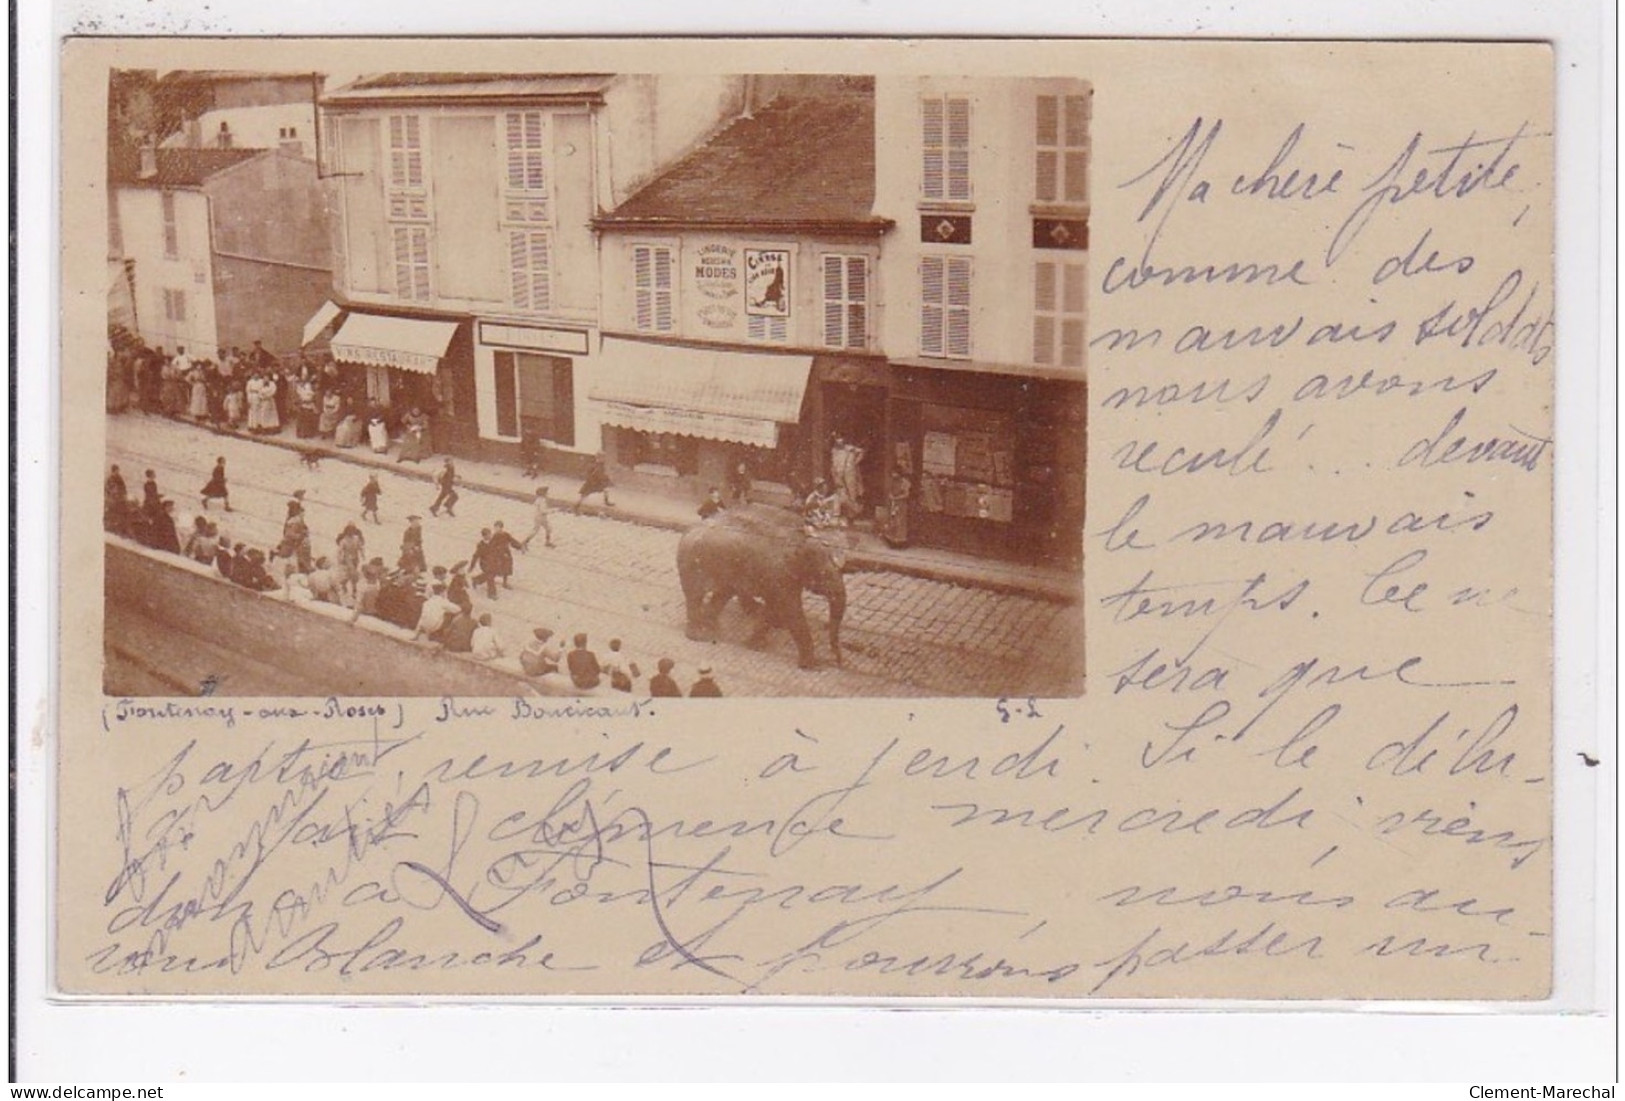 LINGERIE
MODES
CIRAGE
VINS RESTAURANT
Ma chère petite,
comme des
mauvais soldats
nous avons
reculé... devant
le mauvais
temps. Ce ne
sera que
(Fontenay-aux-Roses) Rue Boucicaut. G-L
partie remise à jeudi. Si le délu-
fait clémence mercredi, viens
donc à Fontenay, nous au-
rons Blanche et pourrons passer un
après
amitiés
delcampe.net
Clement-Marechal